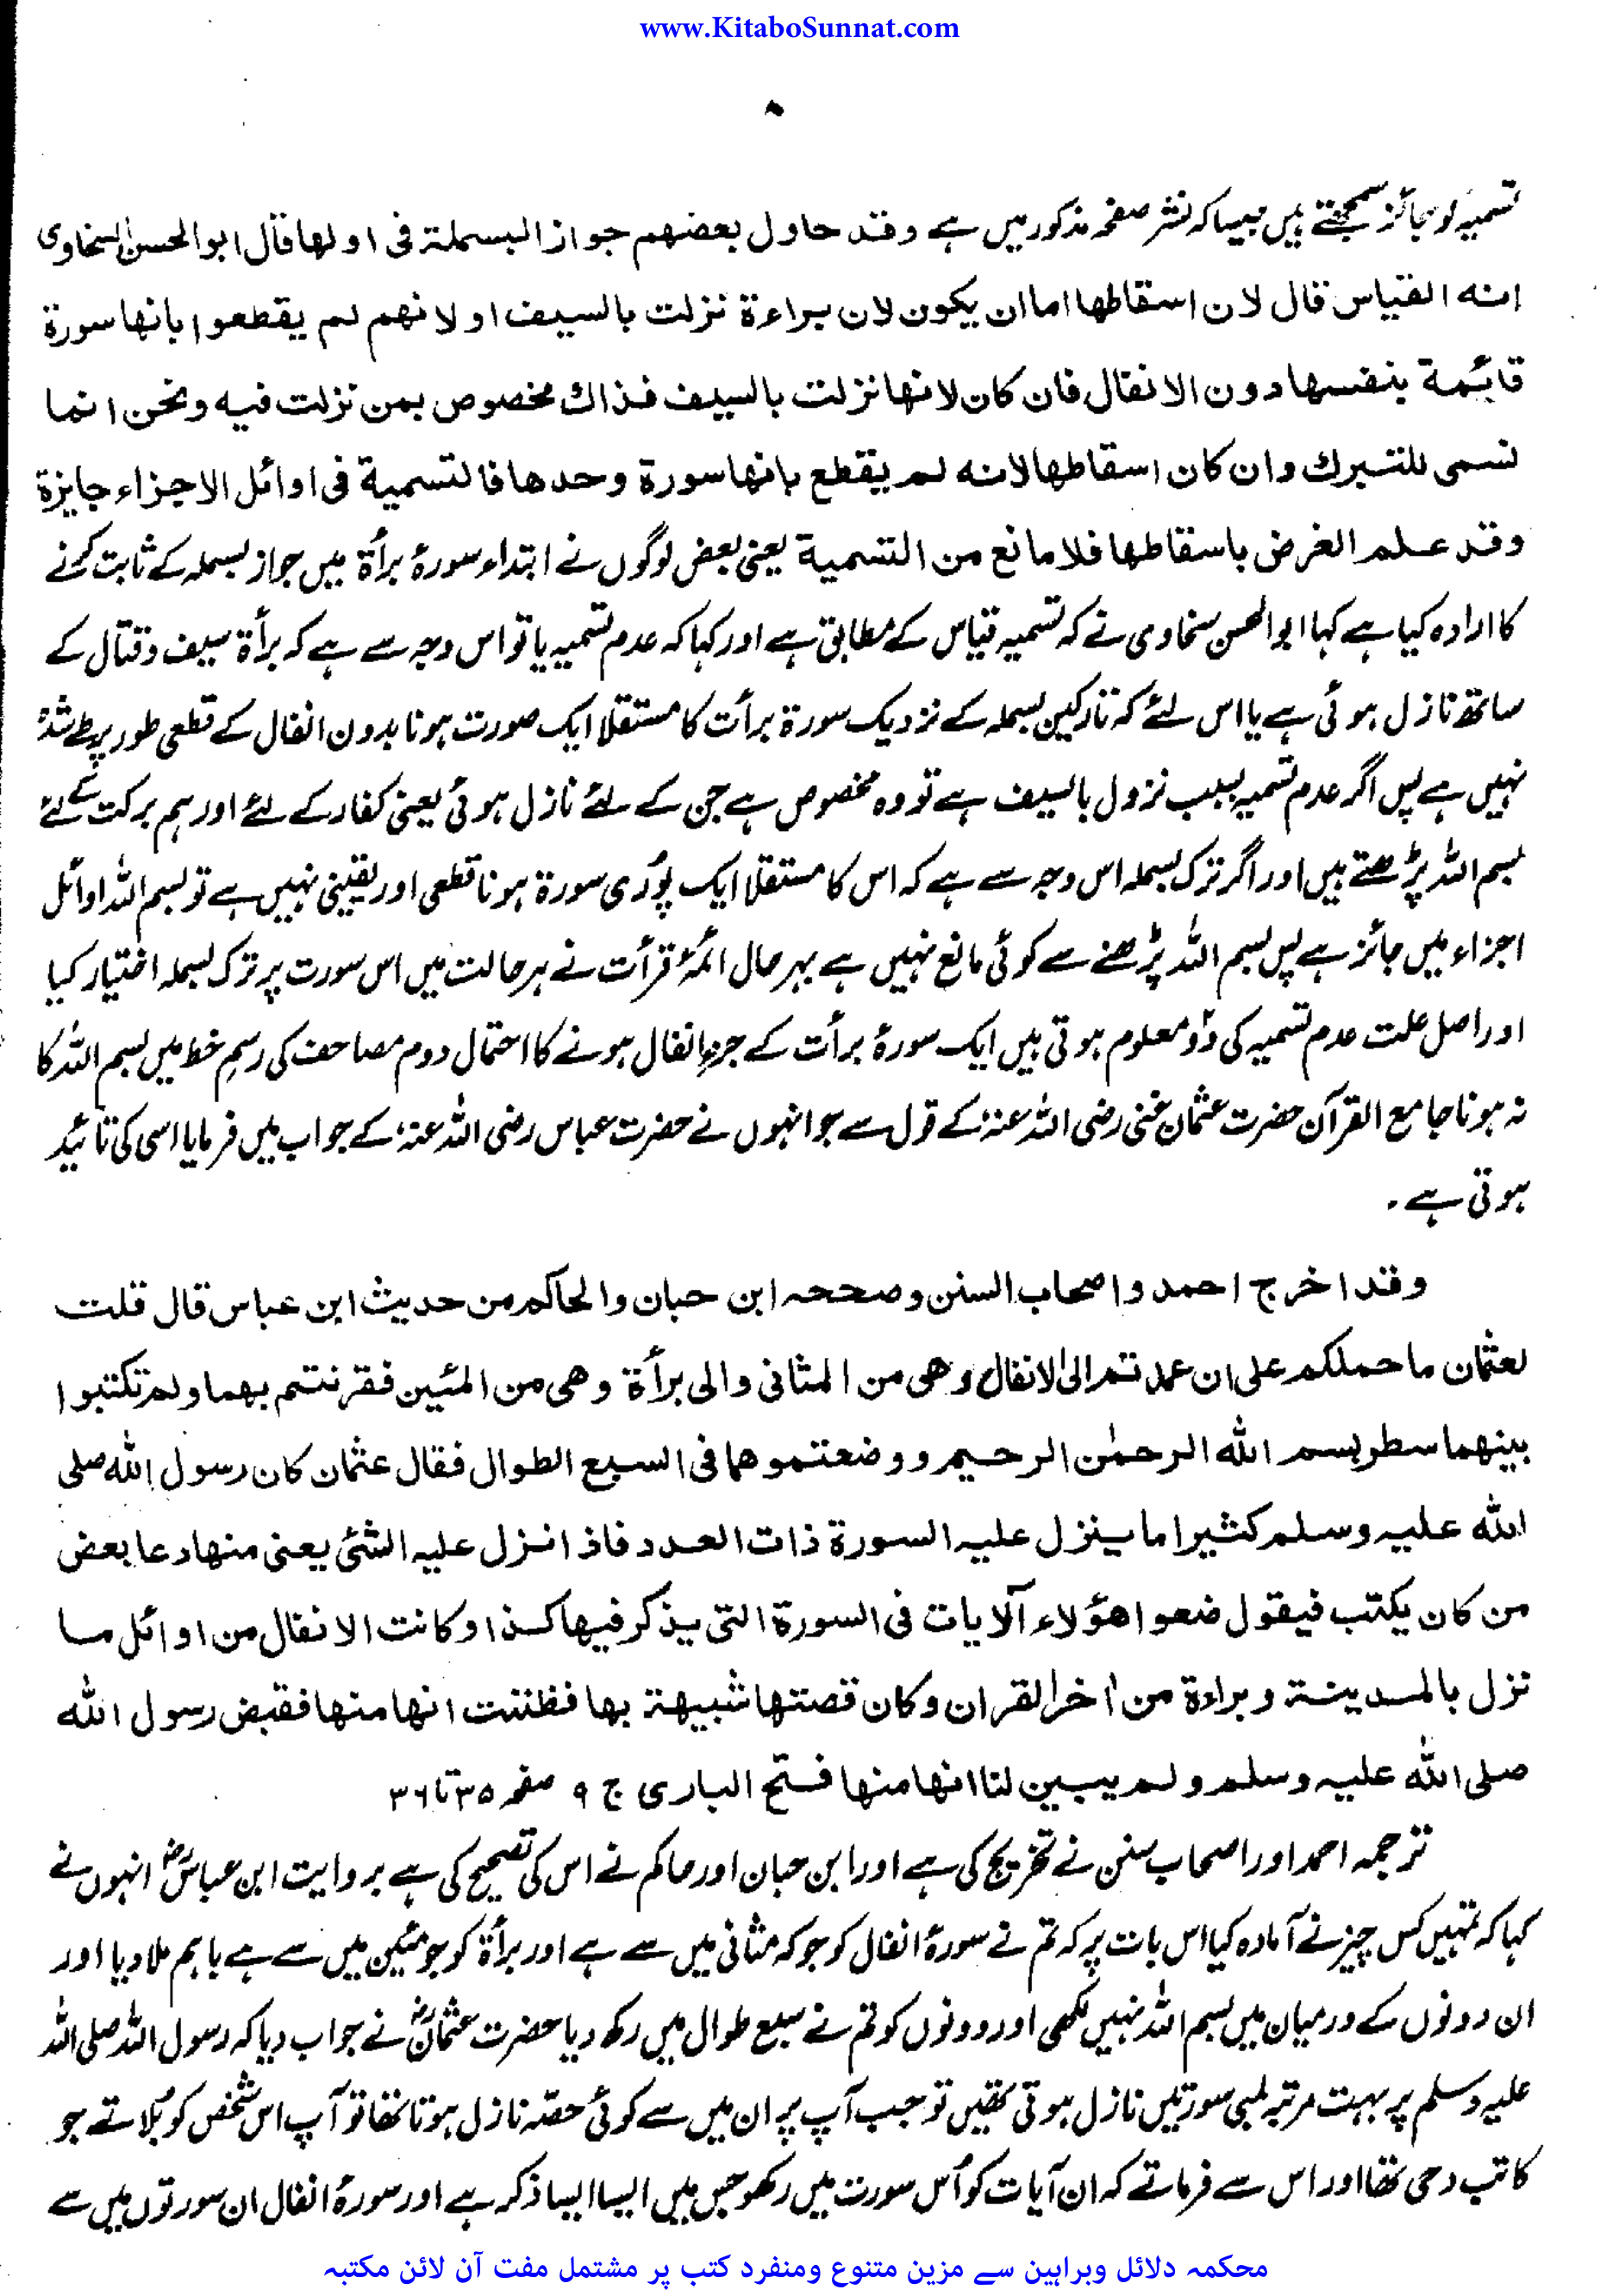 www.KitaboSunnat.com
۸
تسمیہ کو جائز سمجھتے ہیں جیسا کہ نشر صفحہ مذکور میں ہے وقد حاول بعضهم جواز البسملة فی اولها قال ابو الحسن السخاوی
انه القیاس قال لان اسقاطها اما ان یکون لان براءة نزلت بالسیف او لانهم لم یقطعوا بانها سورة
قائمة بنفسها دون الانفال فان کان لانها نزلت بالسیف فذاك مخصوص بمن نزلت فیه ونحن انما
نسمی للتبرك وان کان اسقاطها لانه لم یقطع بانها سورة وحدها فالتسمیة فی اوائل الاجزاء جایزة
وقد علم الغرض باسقاطها فلا مانع من التسمیة یعنی بعض لوگوں نے ابتداء سورۂ برأة میں جواز بسملہ کے ثابت کرنے
کا ارادہ کیا ہے کہا ابو الحسن سخاوی نے کہ تسمیہ قیاس کے مطابق ہے اور کہا کہ عدم تسمیہ یا تو اس وجہ سے ہے کہ برأة سیف و قتال کے
ساتھ نازل ہوئی ہے یا اس لئے کہ تارکین بسملہ کے نزدیک سورة برأت کا مستقلا ایک صورت ہونا بدون انفال کے قطعی طور پر طے شدہ
نہیں ہے پس اگر عدم تسمیہ بسبب نزول بالسیف ہے تو وہ مخصوص ہے جن کے لئے نازل ہوئی یعنی کفار کے لئے اور ہم برکت کے لئے
بسم اللہ پڑھتے ہیں اور اگر ترک بسملہ اس وجہ سے ہے کہ اس کا مستقلا ایک پوری سورة ہونا قطعی اور یقینی نہیں ہے تو بسم اللہ اوائل
اجزاء میں جائز ہے پس بسم اللہ پڑھنے سے کوئی مانع نہیں ہے بہر حال ائمۂ قرأت نے ہر حالت میں اس سورت پر ترک بسملہ اختیار کیا
اور اصل علت عدم تسمیہ کی دو معلوم ہوتی ہیں ایک سورۂ برأت کے جزء انفال ہونے کا احتمال دوم مصاحف کی رسم خط میں بسم اللہ کا
نہ ہونا جامع القرآن حضرت عثمان غنی رضی اللہ عنہ کے قول سے جو انہوں نے حضرت عباس رضی اللہ عنہ کے جواب میں فرمایا اسی کی تائید
ہوتی ہے۔
وقد اخرج احمد و اصحاب السنن وصححه ابن حبان والحاکم من حدیث ابن عباس قال قلت
لعثمان ما حملکم علی ان عمدتم الی الانفال وهی من المثانی والی برأة وهی من المئین فقرنتم بهما ولم تکتبوا
بینهما سطر بسم الله الرحمٰن الرحیم ووضعتموهما فی السبع الطوال فقال عثمان کان رسول الله صلی
الله علیه وسلم کثیرا ما ینزل علیه السورة ذات العدد فاذا نزل علیه الشئ یعنی منها دعا بعض
من کان یکتب فیقول ضعوا هؤلاء الآیات فی السورة التی یذکر فیها کذا وکانت الانفال من اوائل ما
نزل بالمدینة وبراءة من اٰخر القران وکان قصتها شبیهة بها فظننت انها منها فقبض رسول الله
صلی الله علیه وسلم ولم یبین لنا انها منها فتح الباری ج ۹ صفحہ ۳۵ تا ۳۶
ترجمہ احمد اور اصحاب سنن نے تخریج کی ہے اور ابن حبان اور حاکم نے اس کی تصحیح کی ہے بروایت ابن عباسؓ انہوں نے
کہا کہ تمہیں کس چیز نے آمادہ کیا اس بات پر کہ تم نے سورۂ انفال کو جو کہ مثانی میں سے ہے اور برأة کو جو مئین میں سے ہے باہم ملا دیا اور
ان دونوں کے درمیان میں بسم اللہ نہیں لکھی اور دونوں کو تم نے سبع طوال میں رکھ دیا حضرت عثمانؓ نے جواب دیا کہ رسول اللہ صلی اللہ
علیہ وسلم پر بہت مرتبہ لمبی سورتیں نازل ہوتی تھیں تو جب آپ پر ان میں سے کوئی حصّہ نازل ہوتا تھا تو آپ اس شخص کو بُلاتے جو
کاتب وحی تھا اور اس سے فرماتے کہ ان آیات کو اُس سورت میں رکھو جس میں ایسا ایسا ذکر ہے اور سورۂ انفال ان سورتوں میں سے
محکمہ دلائل وبراہین سے مزین متنوع ومنفرد کتب پر مشتمل مفت آن لائن مکتبہ